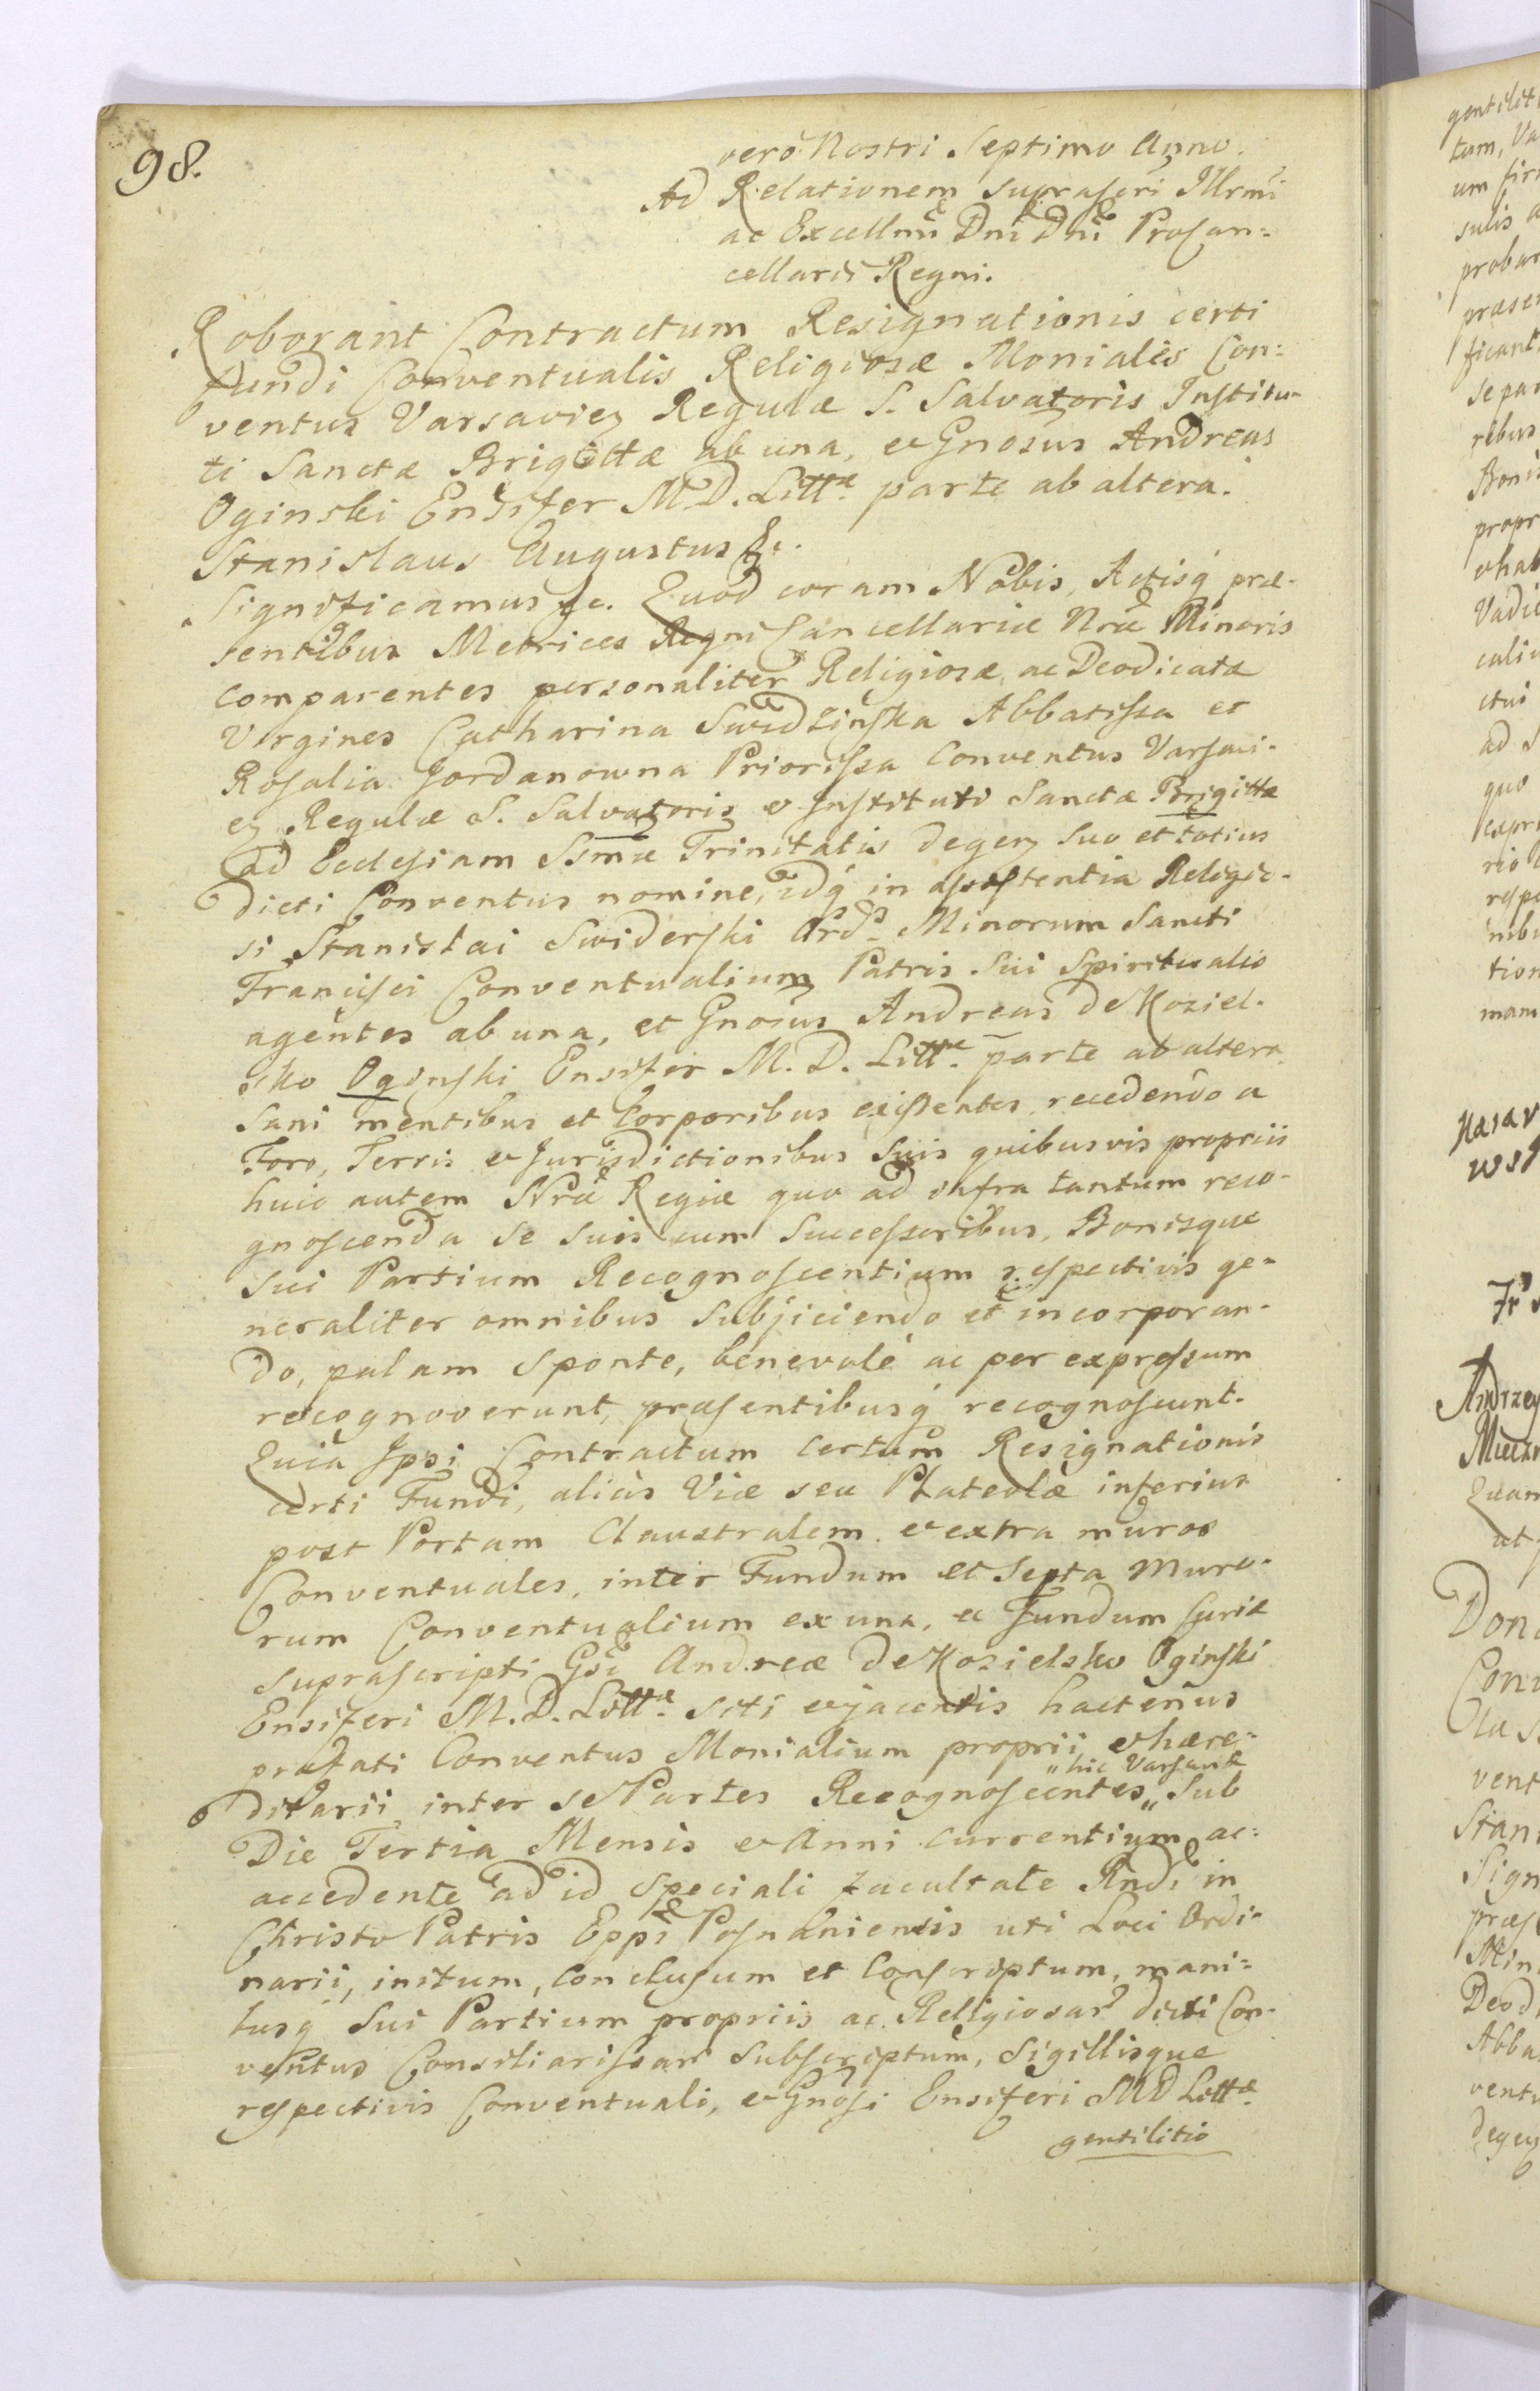 98.
vero Nostri Septimo Anno.
Ad Relationem suprascri Illrmi
ac Excellmi Dni Dni Procan=
cellarii Regni.
Roborant Contractum Resignationis certi
fundi Conventualis Religiosæ Moniales Con=
ventus Varsavien Regulæ S. Salvatoris Institu-
ti Sanctæ Brigittæ ab una, et Gnosus Andreas
Oginski Ensifer M.D. Littæ parte ab altera.
Stanislaus Augustus &c.
Significamus &c. Quod coram Nobis, Actisq præ-
sentibus Metrices Regni Cancellariæ Nræ Minoris
comparentes personaliter Religiosæ, ac Deodicatæ
Virgines Catharina Swidzińska Abbatissa et
Rosalia Jordanowna Priorissa Conventus Varsavi-
en Regulæ S. Salvatoris et Instituti Sanctæ Brigittæ
ad Ecclesiam Ssmæ Trinitatis degen suo et totius
dicti Conventus nomine, idq in assistentia Religio-
si Stanislai Swiderski Ords Minorum Sancti
Francisci Conventualium Patris Sui Spiritualis
agentes ab una, et Gnosus Andreas de Koziel-
sko Oginski Ensifer M. D. Littæ parte ab altera
Sani mentibus et Corporibus existentes, recedendo a
Foro, Terris et Jurisdictionibus Suis quibusvis propriis
huic autem Nræ Regiæ quo ad infra tantum reco-
gnoscenda se suis cum Successoribus, Bonisque
sui Partium Recognoscentium respectivis ge-
neraliter omnibus subjiciendo et incorporan-
do, palam sponte, benevole ac per expressum
recognoverunt, præsentibusq recognoscunt.
Quia Ipsi Contractum certum Resignationis
certi Fundi, alias Viæ seu Plateolæ inferius
post Portam Claustralem et extra muros
Conventuales, inter Fundum et Septa Muro-
rum Conventualium ex una, et Fundum Curiæ
suprascripti Gsi Andreæ de Kozielsko Oginski
Ensiferi M. D. Littæ siti et jacentis hactenus
præfati Conventus Monialium proprii et hære-
ditarii inter se Partes Recognoscentes „hic Varsaviæ„ Sub
Die Tertia Mensis et Anni currentium, ac=
accedente ad id speciali facultate Rndi in
Christo Patris Eppi Posnaniensis uti Loci Ordi-
narii, initum, conclusum et Conscriptum, mani=
busq Sui Partium propriis ac Religiosar dicti Con-
ventus Consiliarissar Subscriptum, Sigillisque
respectivis Conventuali, et Gnosi Ensiferi MD Littæ
gentilitio